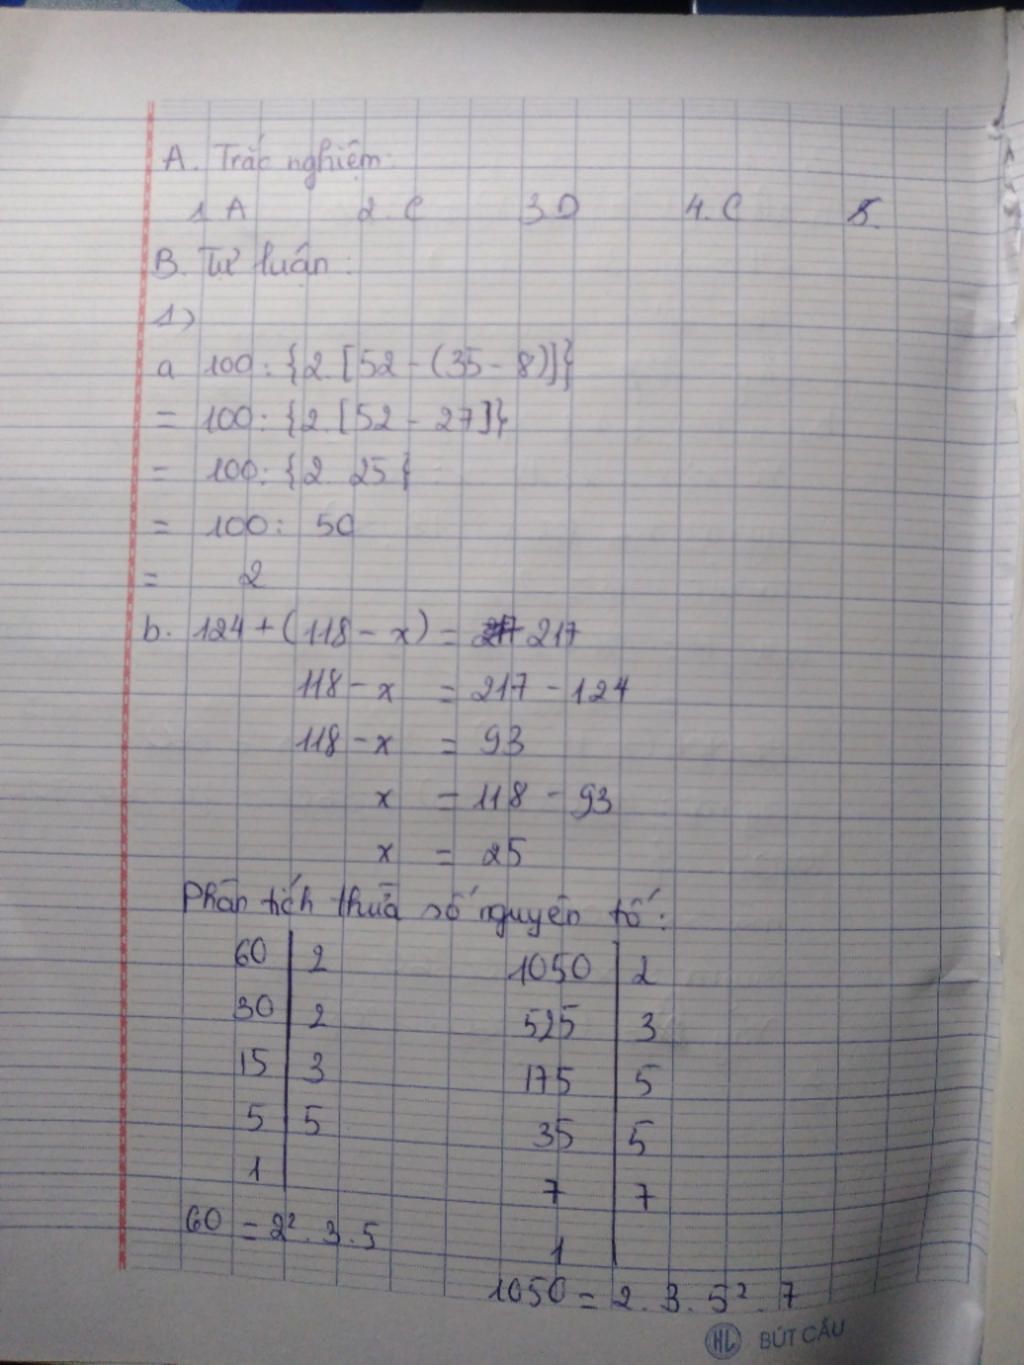 A. Trắc nghiệm:
1. A 2. C 3 D 4. C 5.
B. Tự luận:
1)
a 100: {2.[52-(35-8)]}
= 100: {2.[52-27]}
= 100: {2. 25}
= 100: 50
= 2
b. 124+(118-x) = 217
118-x = 217-124
118-x = 93
x = 118-93
x = 25
Phân tích thừa số nguyên tố:
60 | 2 1050 | 2
30 | 2 525 | 3
15 | 3 175 | 5
5 | 5 35 | 5
1 | 7 | 7
60 = 2². 3. 5 1 |
1050 = 2. 3. 5². 7
HL BÚT CẦU